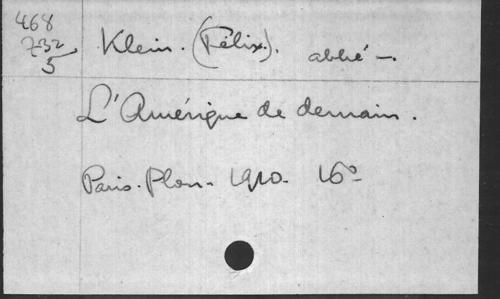 468
732
5
Klein. (Félix.). abbé -.
L'Amérique de demain.
Paris. Plon. 1910. 16°